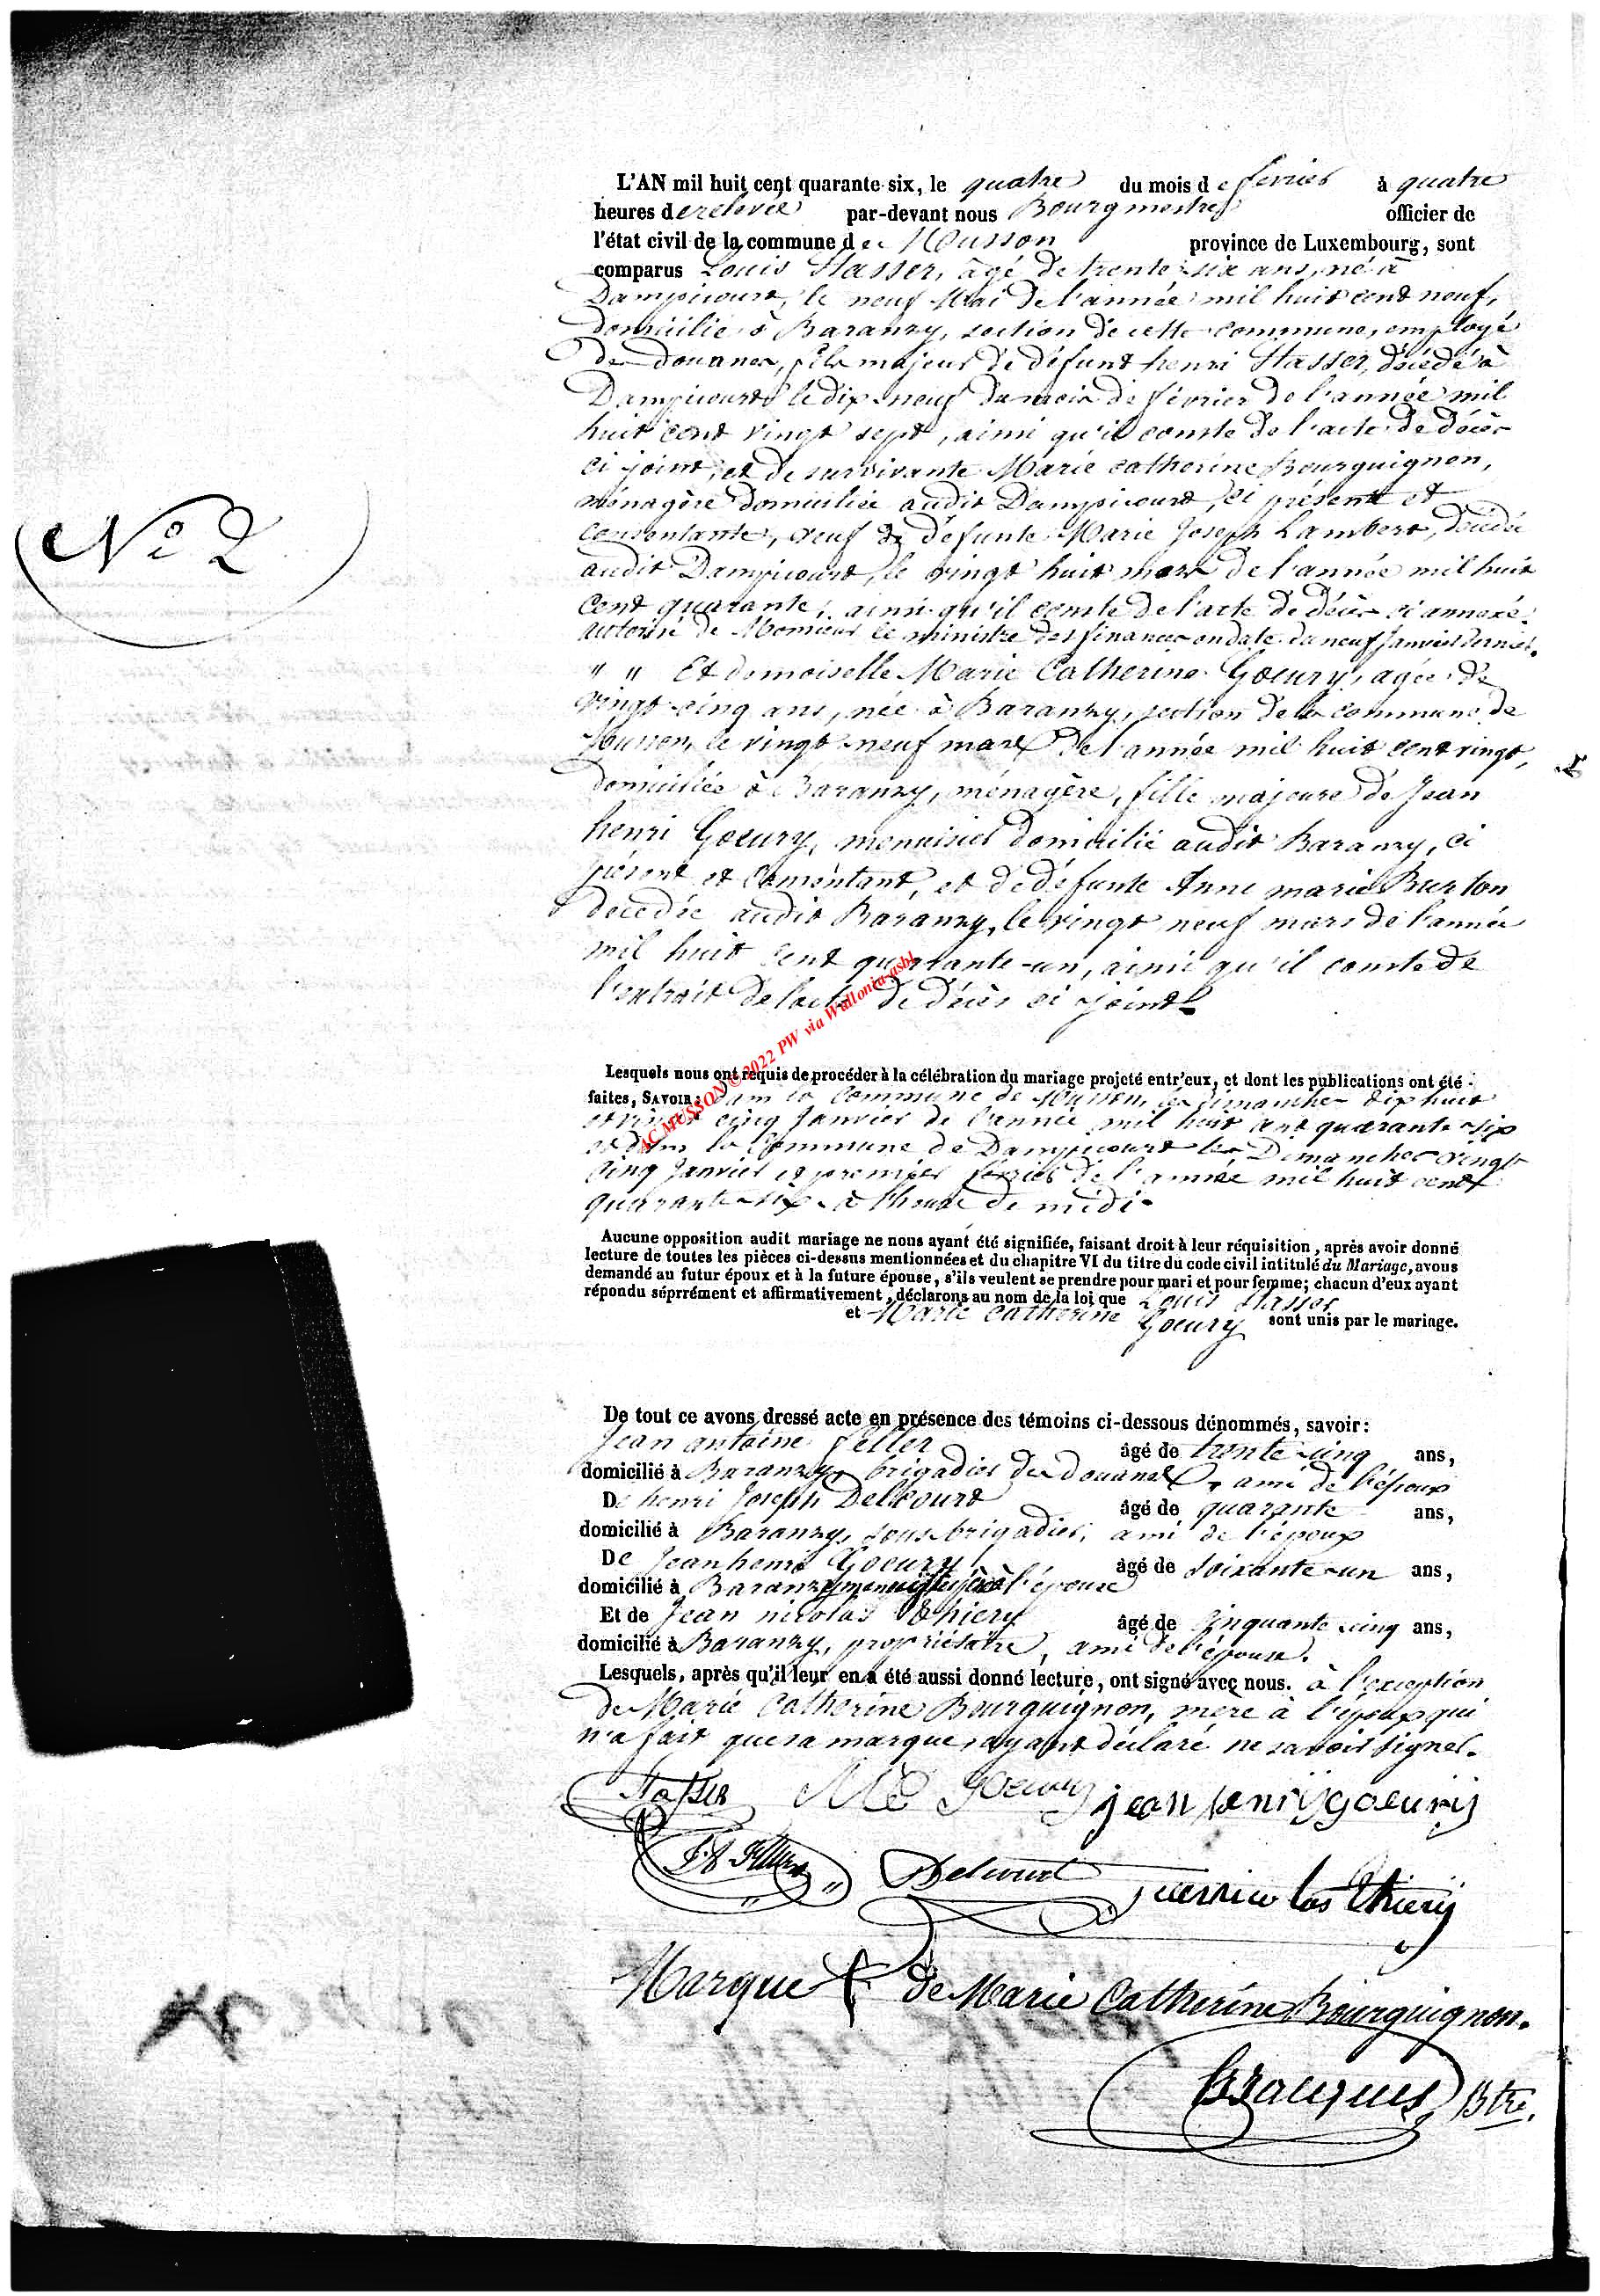 N° 2
L'AN mil huit cent quarante six, le quatre du mois de février à quatre
heures de relevée par-devant nous Bourgmestre officier de
l'état civil de la commune de Musson province de Luxembourg, sont
comparus Louis Stasser, âgé de trente-six ans, né à
Dampicourt, le neuf Mai de l'année mil huit cent neuf,
domicilié à Baranzy, section de cette commune, employé
de douanes, fils majeur de défunt henri Stasser, décédé à
Dampicourt le dix-neuf du mois de février de l'année mil
huit cent vingt sept, ainsi qu'il conste de l'acte de décès
ci joint, et de survivante Marie Catherine Bourguignon,
ménagère domiciliée audit Dampicourt, ci présente et
consentante, veuf de défunte Marie Joseph Lambert, décédée
audit Dampicourt, le vingt huit mars de l'année mil huit
cent quarante, ainsi qu'il conste de l'acte de décès ci annexé.
autorisé de Monsieur le ministre des finances en date du neuf Janvier dernier.
" " Et demoiselle Marie Catherine Goeury, agée de
vingt-cinq ans, née à Baranzy, section de la commune de
Musson, le vingt-neuf mars de l'année mil huit cent vingt,
domiciliée à Baranzy, ménagère, fille majeure de Jean
henri Goeury, menuisier domicilié audit Baranzy, ci
présent et consentant, et de défunte Anne marie Burton
décédée audit Baranzy, le vingt neuf mars de l'année
mil huit cent quarante-un, ainsi qu'il conste de
l'extrait de l'acte de décès ci joint.
Lesquels nous ont requis de procéder à la célébration du mariage projeté entr'eux, et dont les publications ont été
faites, SAVOIR: dans la Commune de Musson, les dimanches dix huit
et vingt cinq Janvier de l'année mil huit cent quarante-six
et dans la Commune de Dampicourt les Dimanches vingt
cinq Janvier et premier février de l'année mil huit cent
quarante-six - à l'heure de midi.
Aucune opposition audit mariage ne nous ayant été signifiée, faisant droit à leur réquisition, après avoir donné
lecture de toutes les pièces ci-dessus mentionnées et du chapitre VI du titre du code civil intitulé du Mariage, avons
demandé au futur époux et à la future épouse, s'ils veulent se prendre pour mari et pour femme; chacun d'eux ayant
répondu séprrément et affirmativement, déclarons au nom de la loi que Louis Stasser
et Marie Catherine Goeury sont unis par le mariage.
De tout ce avons dressé acte en présence des témoins ci-dessous dénommés, savoir:
Jean antoine feller âgé de trente-cinq ans,
domicilié à Baranzy, brigadier des douanes, ami de l'époux
De henri Joseph Delcourt âgé de quarante ans,
domicilié à Baranzy, sous-brigadier, ami de l'époux
De Jean henri Goeury âgé de soixante-un ans,
domicilié à Baranzy menuisier père à l'épouse
Et de Jean nicolas Thiery âgé de cinquante-cinq ans,
domicilié à Baranzy, propriétaire, ami de l'épouse.
Lesquels, après qu'il leur en a été aussi donné lecture, ont signé avec nous. à l'exception
de Marie Catherine Bourguignon, mère à l'époux qui
n'a fait que sa marque, ayant déclaré ne savoir signer.
Stasser MC Goeury jean henrij goeurij
JA feller Delcourt jean nicolas thierij
Marque de Marie Catherine Bourguignon.
Jracques Btre.
AC MUSSON © 2022 PW via Wallonia-asbl